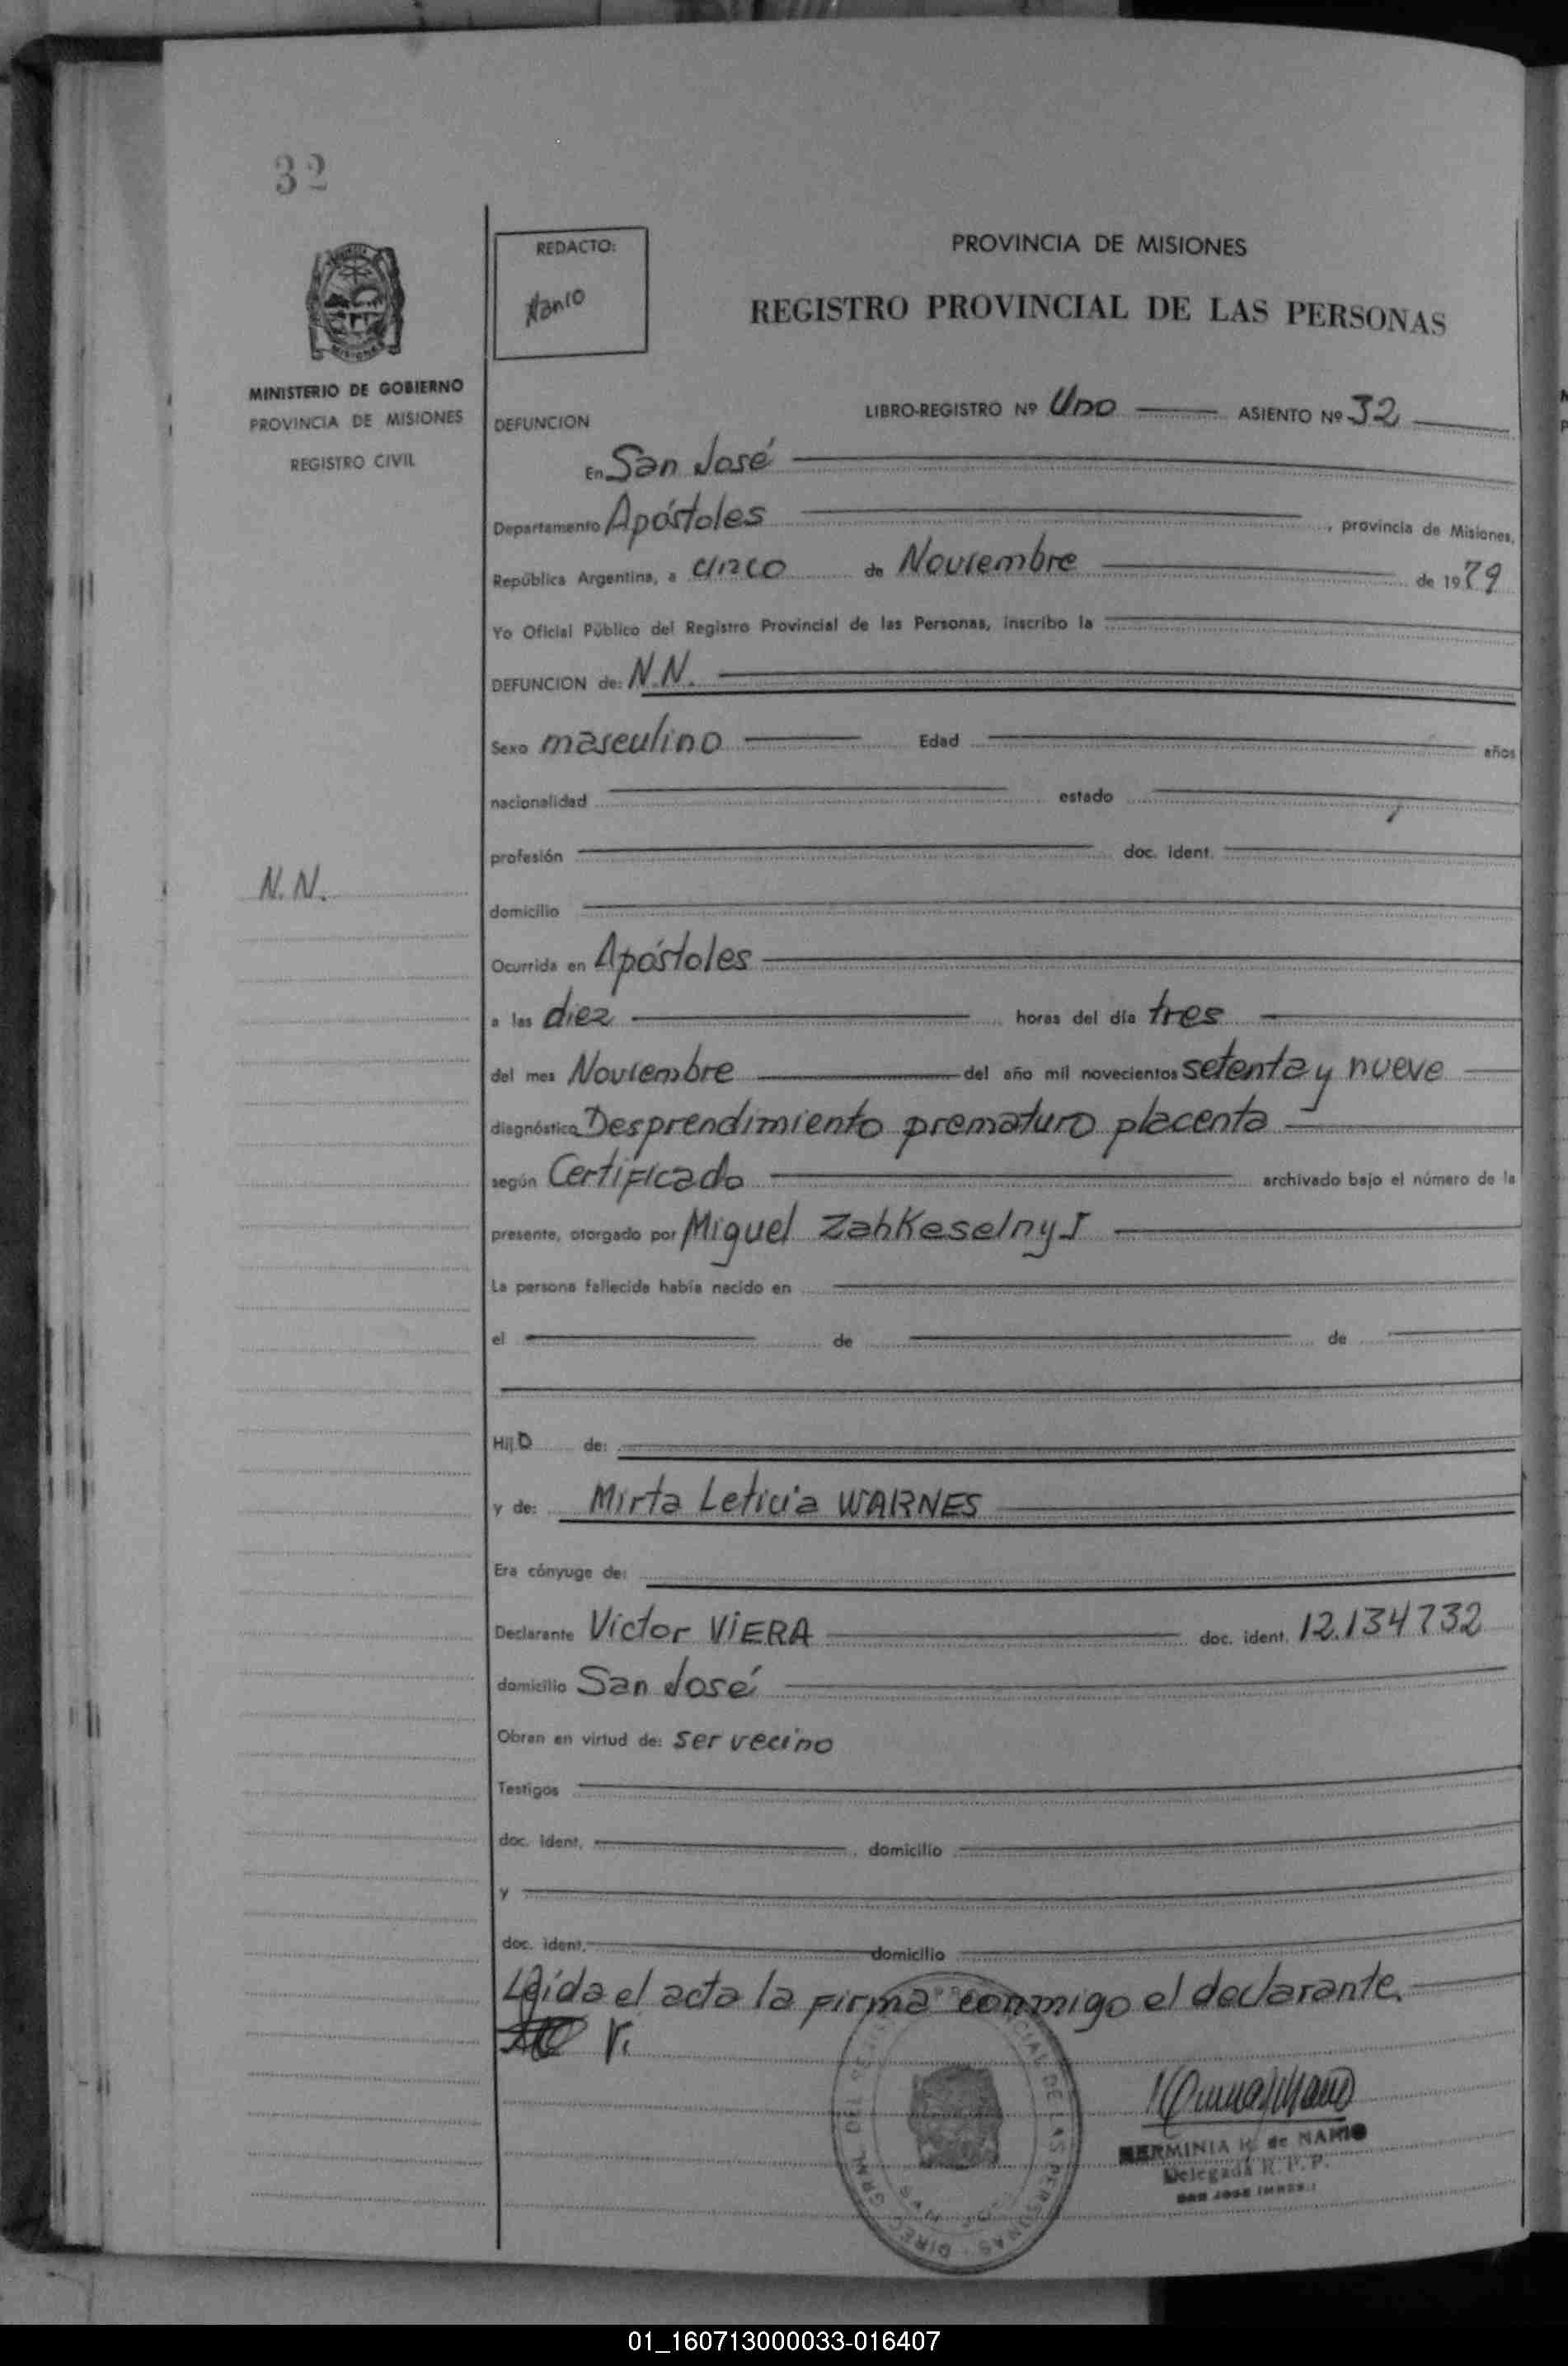 32
REDACTO:
Nanio
PROVINCIA DE MISIONES
REGISTRO PROVINCIAL DE LAS PERSONAS
MISIONES
MINISTERIO DE GOBIERNO
PROVINCIA DE MISIONES
REGISTRO CIVIL
DEFUNCION
LIBRO-REGISTRO Nº Uno ASIENTO Nº 32
En San José
Departamento Apóstoles, provincia de Misiones,
República Argentina, a cinco de Noviembre de 1979
Yo Oficial Público del Registro Provincial de las Personas, inscribo la
DEFUNCION de: N.N.
Sexo masculino Edad años
nacionalidad estado
profesión doc. ident.
N.N.
domicilio
Ocurrida en Apóstoles
a las diez horas del día tres
del mes Noviembre del año mil novecientos setenta y nueve
diagnóstico Desprendimiento prematuro placenta
según Certificado archivado bajo el número de la
presente, otorgado por Miguel ZahKeselnyJ
La persona fallecida había nacido en
el de de
Hijo de:
y de: Mirta Leticia WARNES
Era cónyuge de:
Declarante Víctor VIERA doc. ident. 12.134732
domicilio San José
Obran en virtud de: ser vecino
Testigos
doc. ident. domicilio
y
doc. ident. domicilio
Leída el acta la firma conmigo el declarante.
V.
HERMINIA K. de NANIO
Delegada R. P. P.
SAN JOSE
01_160713000033-016407